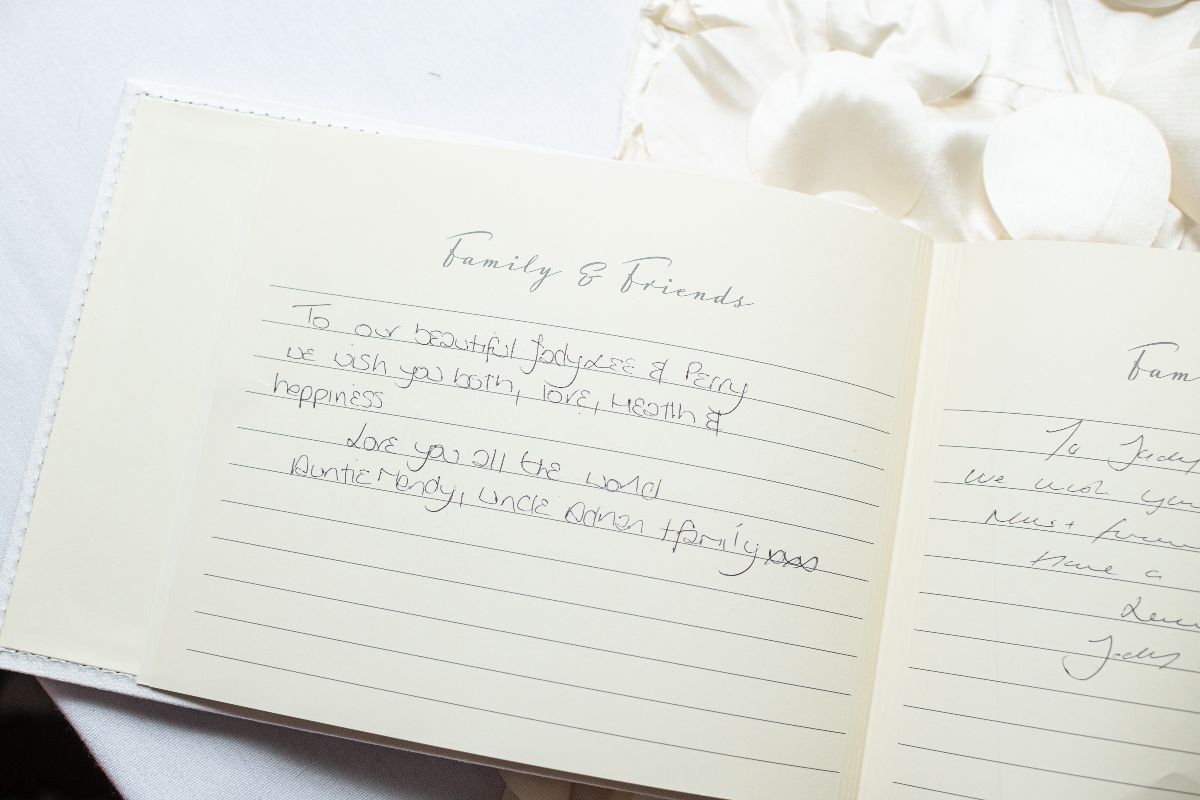 Family & Friends
To our beautiful JodyLee & Perry
we wish you both, love, Health &
happiness
Love you all the world
Auntie Mandy, Uncle Adrian + family xxx
Fam
To
we wish you
Must
Have a